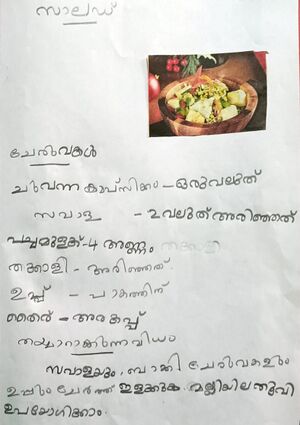 സാലഡ്
ചേരുവകൾ
ചുവന്ന കാപ്സിക്കം - ഒരു വലുത്
സവാള - 2 വലുത് അരിഞ്ഞത്
പച്ചമുളക് - 4 അണ്ണം
തക്കാളി - അരിഞ്ഞത്.
ഉപ്പ് - പാകത്തിന്
തൈര് - അര കപ്പ്
തയ്യാറാക്കുന്ന വിധം
സവാളയും, ബാക്കി ചേരുവകളും
ഉപ്പും ചേർത്ത് ഇളക്കുക. മല്ലിയില തൂവി
ഉപയോഗിക്കാം.